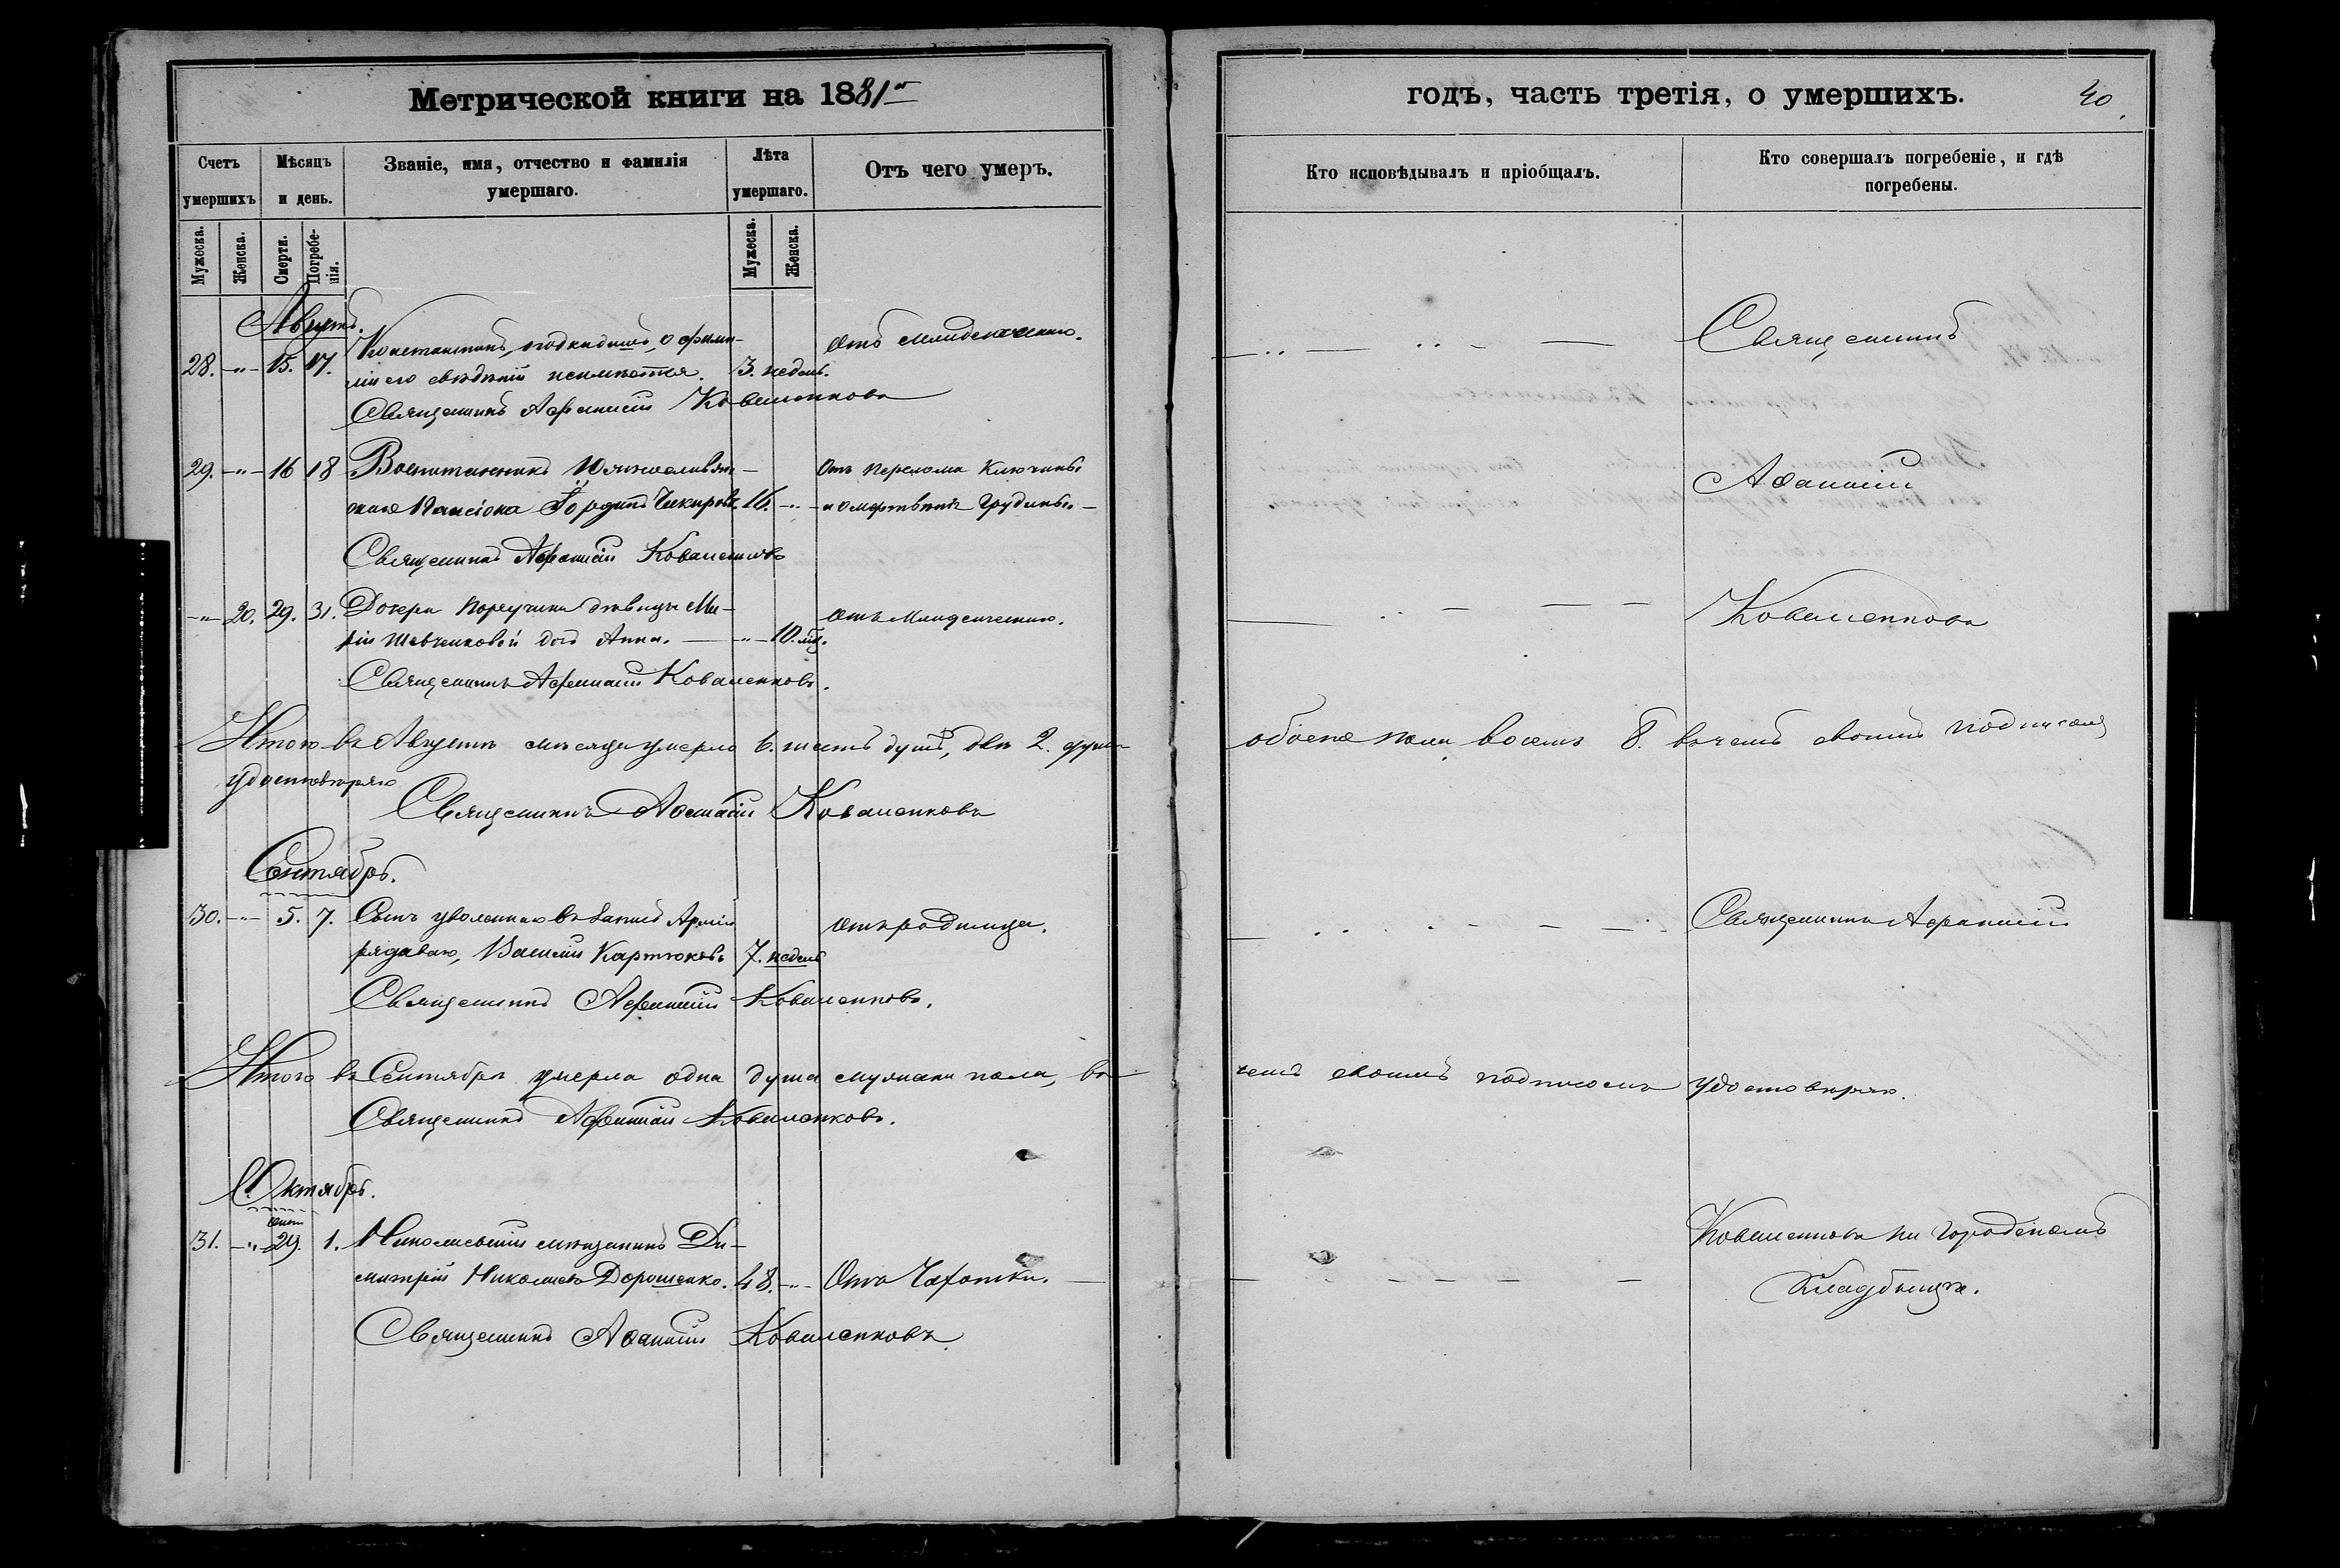 Метрической книги на 1881й
Счетъ умершихъ
Мѣсяцъ и день.
Званіе, имя, отчество и фамилія умершаго.
Лѣта умершаго.
Отъ чего умеръ.
Мужеска.
Женска.
Смерти.
Погребенія.
Мужеска.
Женска.
Августъ.
28. -"- 15. 17. Константинъ, подкидышъ, о фами- Отъ младенческаго.
ліи его свѣдѣній неимѣется. 3. недѣль.
Священникъ Афанасій Коваленковъ
29. -"- 16 18 Воспитанникъ Южнославян- Отъ перелома ключицы
скаго Пансіона Чикировъ. 16. -"- и омертвѣнія грудины.
Священникъ Афанасій Коваленковъ
-"- 20. 29. 31. Дочери поручика дѣвицы Ма- Отъ младенческаго.
ріи Шевченковой дочь Анна. -"- 10. мѣс.
Священникъ Афанасій Коваленковъ.
Итого въ Августѣ мѣсяцѣ умерло 6. шесть душъ, двѣ 2. души
удостовѣряю
Священникъ Афанасій Коваленковъ
Сентябрь.
30. -"- 5. 7. Сынъ уволеннаго въ запасъ Арміи отъ родимца.
рядоваго, Василій Картюковъ 7. недѣль
Священникъ Афанасій Коваленковъ.
Итого въ Сентябрѣ умерла одна душа мужска пола, въ
Священникъ Афанасій Коваленковъ.
Октябрь.
31. -"- 29. 1. Николаевскій мѣщанинъ Ди-
митрій Николаевъ Дорошенко. 48. -"- Отъ Чахотки.
Священникъ Афанасій Коваленковъ.
годъ, часть третія, о умершихъ. 40.
Кто исповѣдывалъ и пріобщалъ.
Кто совершалъ погребеніе, и гдѣ погребены.
Священникъ
Афанасій
Коваленковъ
обоего пола восемь 8. въ чемъ своимъ подписомъ
Священникъ Афанасій
чемъ своимъ подписомъ удостовѣряю.
Коваленковъ на городскомъ
Кладбищѣ.